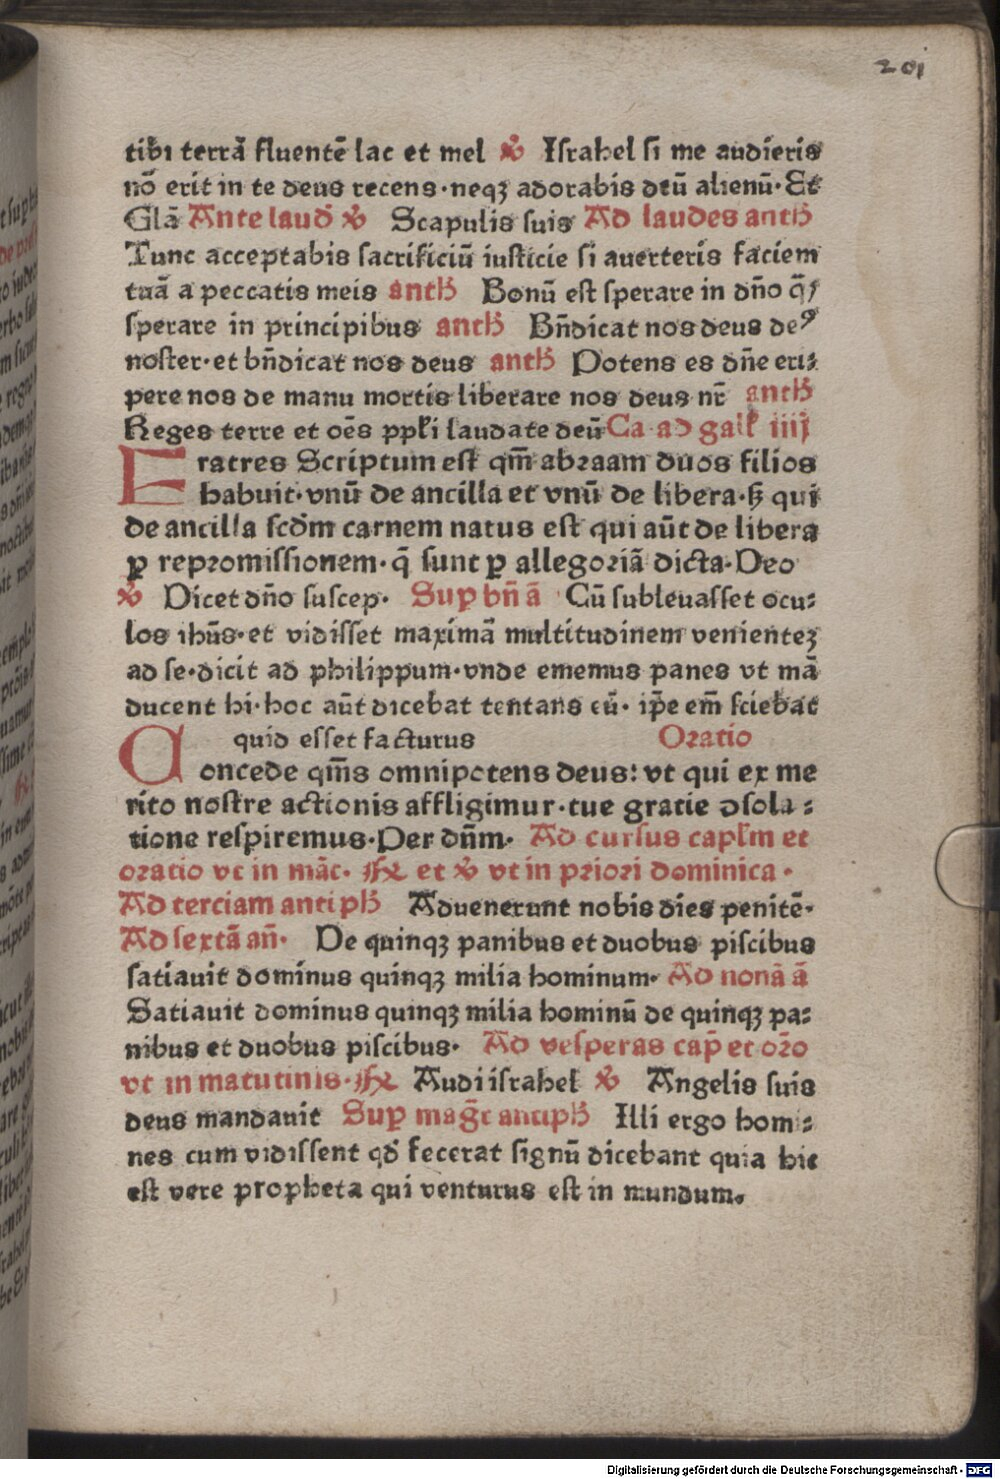 201
tibi terrā fluentē lac et mel ℣ Israhel si me audieris
nō erit in te deus recens·neqꝫ adorabis deū alienū·Et
Glā Ante laud̄ ℣ Scapulis suis Ad laudes anth
Tunc acceptabis sacrificiū iusticie si auerteris faciem
tuā a peccatis meis anth Bonū est sperare in dn̄o q̄ꝫ
sperare in principibus anth Bn̄dicat nos deus deꝰ
noster·et bn̄dicat nos deus anth Potens es dn̄e eri⸗
pere nos de manu mortis liberare nos deus nr̄ anth
Reges terre et oēs pp̄li laudate deū Ca ad gal̄ iiij
Eratres Scriptum est qm̄ abꝛaam duos filios
habuit·vnū de ancilla et vnū de libera·ſꝫ qui
de ancilla scd̄m carnem natus est qui aūt de libera
ꝑ repꝛomissionem·q̄ sunt ꝑ allegoꝛiā dicta·Deo
℣ Dicet dn̄o suscep· Suꝑ bn̄ ā Cū subleuasset ocu⸗
los ihūs·et vidisset maximā multitudinem venienteꝫ
ad se·dicit ad philippum·vnde ememus panes vt mā
ducent hi·hoc aūt dicebat tentans eū· ip̄e em̄ sciebat
quid esset facturus Oratio
Concede qm̄s omnipotens deus: vt qui ex me
rito nostre actionis affligimur·tue gratie ↄsola⸗
tione respiremus·Per dn̄m· Ad cursus cap̄lm et
oratio vt in māt· ℟ et ℣ vt in pꝛioꝛi dominica·
Ad terciam antiph Aduenerunt nobis dies penitē·
Ad sextā an̄· De quinqꝫ panibus et duobus piscibus
satiauit dominus quinqꝫ milia hominum· Ad nonā ā
Satiauit dominus quinqꝫ milia hominū de quinqꝫ pa⸗
nibus et duobus piscibus· Ad vesperas cap̄ et oꝛ̄o
vt in matutinis·℟ Audi israhel ℣ Angelis suis
deus mandauit Suꝑ mag̃t antiph Illi ergo homi⸗
nes cum vidissent qd̄ fecerat signū dicebant quia hic
est vere propheta qui venturus est in mundum.
Digitalisierung gefördert durch die Deutsche Forschungsgemeinschaft - DFG